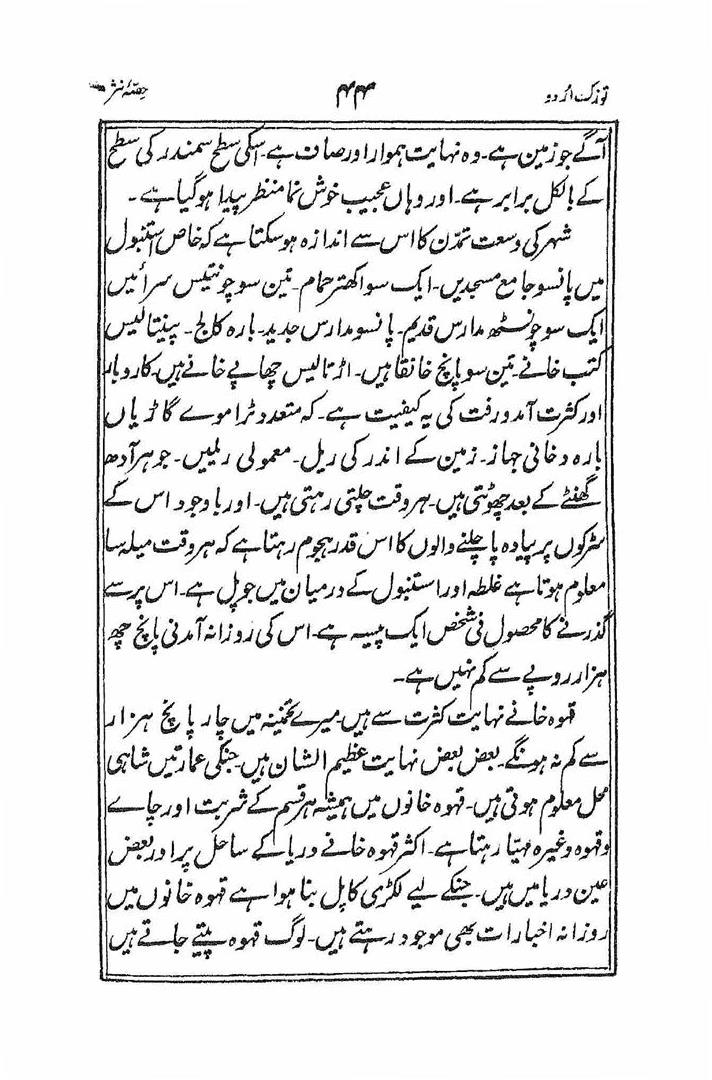 توزک اُردو ۴۴ حصّۂ نثر
آگے جو زمین ہے۔ وہ نہایت ہموار اور صاف ہے۔ اسکی سطح سمندر کی سطح
کے بالکل برابر ہے۔ اور وہاں عجیب خوش نما منظر پیدا ہوگیا ہے۔
شہر کی وسعت تمدّن کا اس سے اندازہ ہوسکتا ہے کہ خاص استنبول
میں پانسو جامع مسجدیں۔ ایک سو اکھتر حمام۔ تین سو چونتیس سرائیں
ایک سو چونسٹھ مدارس قدیم۔ پانسو مدارس جدید۔ بارہ کالج۔ پینتالیس
کتب خانے۔ تین سو پانچ خانقاہیں۔ اڑتالیس چھاپے خانے ہیں۔ کاروبار
اور کثرت آمدورفت کی یہ کیفیت ہے۔ کہ متعدد ٹراموے گاڑیاں
بارہ دخانی جہاز۔ زمین کے اندر کی ریل۔ معمولی ریلیں۔ جو ہر آدھ
گھنٹے کے بعد چھوٹتی ہیں۔ ہر وقت چلتی رہتی ہیں۔ اور باوجود اس کے
سڑکوں پر پیادہ پا چلنے والوں کا اس قدر ہجوم رہتا ہے کہ ہر وقت میلہ سا
معلوم ہوتا ہے غلطہ اور استنبول کے درمیان میں جو پل ہے۔ اس پر سے
گذرنے کا محصول فی شخص ایک پیسہ ہے۔ اس کی روزانہ آمدنی پانچ چھ
ہزار روپے سے کم نہیں ہے۔
قہوہ خانے نہایت کثرت سے ہیں۔ میرے تخمینہ میں چار پانچ ہزار
سے کم نہ ہونگے۔ بعض بعض نہایت عظیم الشان ہیں۔ جنکی عمارتیں شاہی
محل معلوم ہوتی ہیں۔ قہوہ خانوں میں ہمیشہ ہر قسم کے شربت اور چاے
و قہوہ وغیرہ مہیّا رہتا ہے۔ اکثر قہوہ خانے دریا کے ساحل پر اور بعض
عین دریا میں ہیں۔ جنکے لیے لکڑی کا پل بنا ہوا ہے قہوہ خانوں میں
روزانہ اخبارات بھی موجود رہتے ہیں۔ لوگ قہوہ پیتے جاتے ہیں